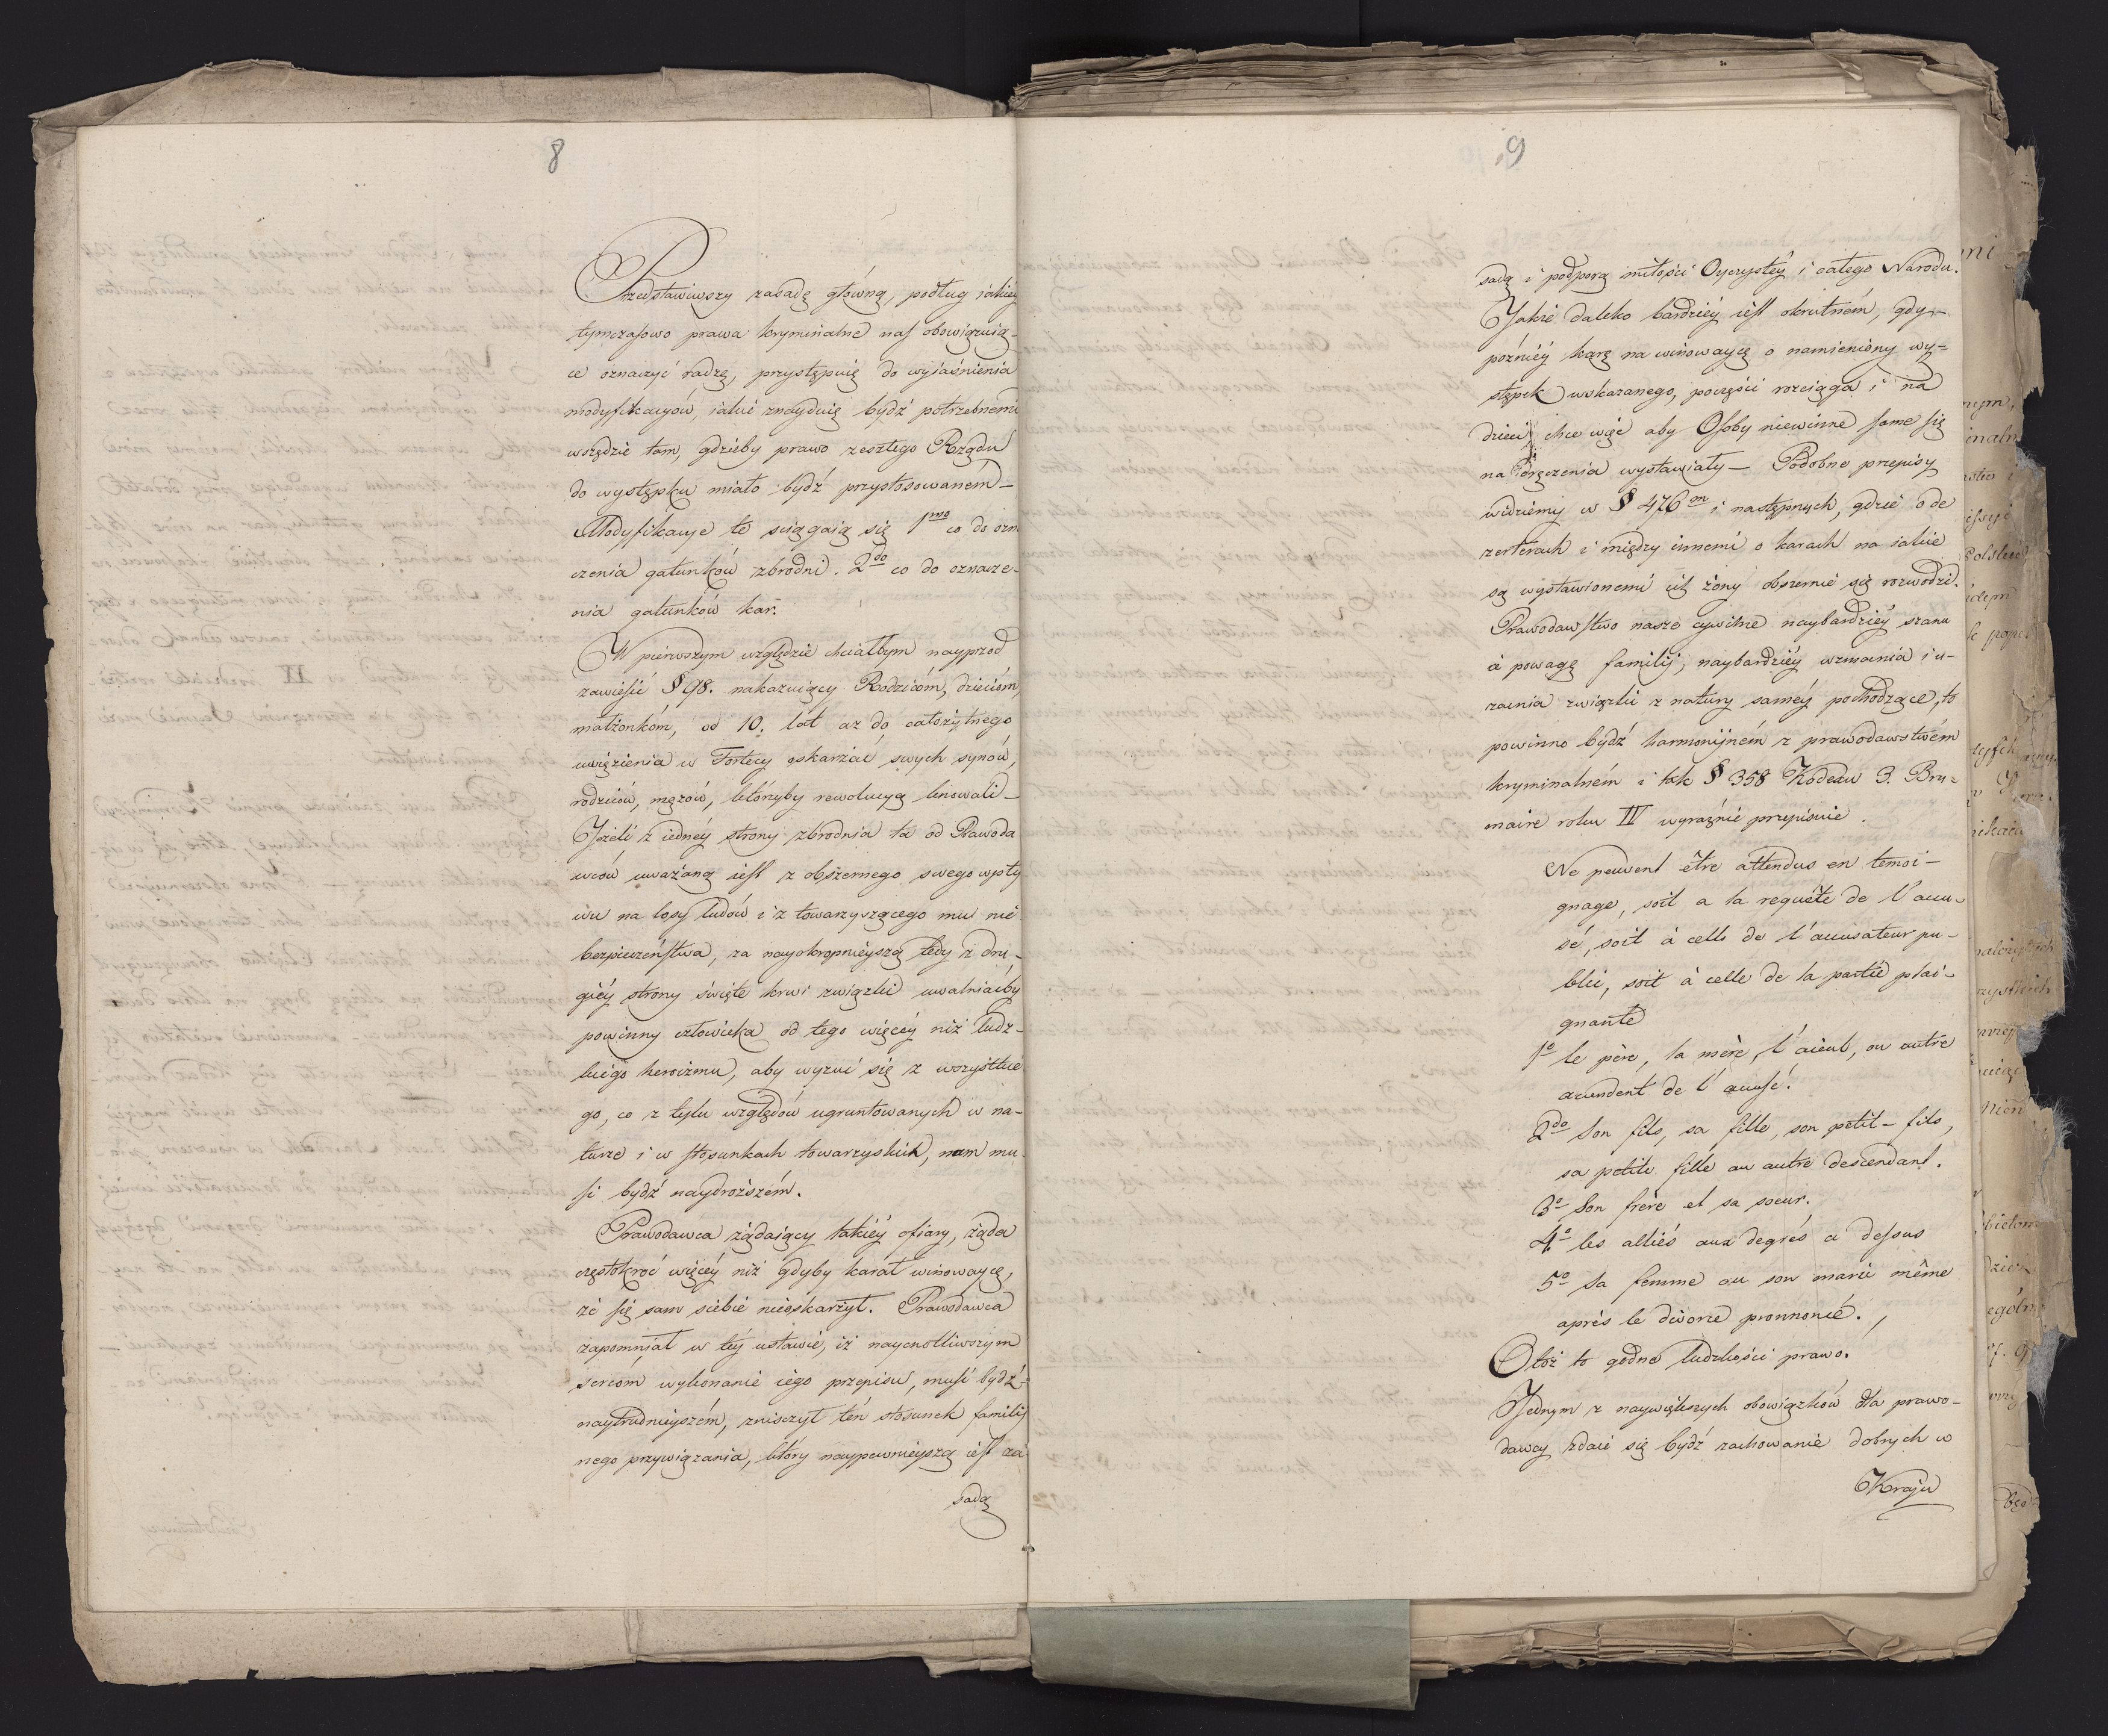 8
Przedstawiwszy zasadę główną, podług iakiey
tymczasowo prawa kryminalne nas obowięzuią-
ce oznaczyć radzę, przystępuię do wyiaśnienia
modyfikacyów, iakie znayduię bydź potrzebnemi
wszędzie tam, gdzieby prawo zeszłego Rządu
do występku miało bydź przystosowaném –
Modyfikacye te sciągaią się 1mo co do ozna
czenia gatunków zbrodni. 2do co do oznacze-
nia gatunków kar.
W piérwszym względzie chciałbym nayprzod
zawiesić § 98. nakazuiący Rodzicóm, dzieciom,
małżonkóm, od 10. lat az do całożytnego
uwięzienia w Fortecy oskarżać swych synów,
rodziców, mężów, którzyby rewolucyą knowali –
Jżeli z iednéy strony zbrodnia ta od Prawoda
wców uważaną iest z obszernego swego wpły
wu na losy ludów i z towarzyszącego mu nie
bezpieczeństwa, za nayokropnieyszą tedy z dru-
giéy strony święte krwi związki uwalniaćby
powinny człowieka od tego więcéy niż ludz-
kiégo heroizmu, aby wyzuć się z wszystkie
go, co z tylu względów ugruntowanych w na-
turze i w stosunkach towarzyskich, nam mu-
si bydź naydroższém.
Prawodawca żądaiący takiéy ofiary, żąda
częstokroć więcéy niż gdyby karał winowaycę,
że się sam siebie nieoskarżył. Prawodawca
zapomniał w téy ustawie, iż naycnotliwszym
sercom wykonanie iego przepisu, musi bydź
naytrudnieyszém, zniszczył tén stosunek familij
nego przywiązania, który naypewnieyszą iest za
sadą
9
sadą i podporą miłości Oyczystéy i całego Narodu.
Jakże daleko bardziéy iest okrutném, gdy
poźniéy karę na winowaycę o namieniony wy-
stępek wskazanego, poczęści rozciąga i na
dzieci chce więc aby Osoby niewinne same się
na dręczenia wystawiały – Podobne przepisy
widziemy w § 476m i następnych, gdzie o de
zerterach i między innemi o karach na iakie
są wystawionemi ich żony obszernie się rozwodzi.
Prawodawstwo nasze cywilne naybardziéy szanu
ie powagę familij, naybardziéy wzmacnia i u-
zacnia związki z natury saméy pochodzące, to
powinno bydź harmonijném z prawodawstwém
kryminalném i tak § 358 Kodexu 3. Bru-
maire roku IV wyraźnie przepisuie.
Ne peuvent être attendus en temoi-
gnage, soit a la requête de l'accu-
sé, soit à celle de l'accusateur pu-
blic, soit à celle de la partie plai-
gnante
1o le père, la mère, l'aieul, ou autre
ascendent de l'accusé.
2do Son fils, sa fille, son petit-fils,
sa petite fille ou autre descendant.
3o Son frère et sa soeur.
4o les alliés aux degrés ci dessus
5o Sa femme ou son marié même
après le divorce pronnoncé.
Otoż to godne ludzkości prawo.
Jednym z naywiększych obowiązków dla prawo-
dawcy zdaie się bydź zachowanie dobrych w
Kraju